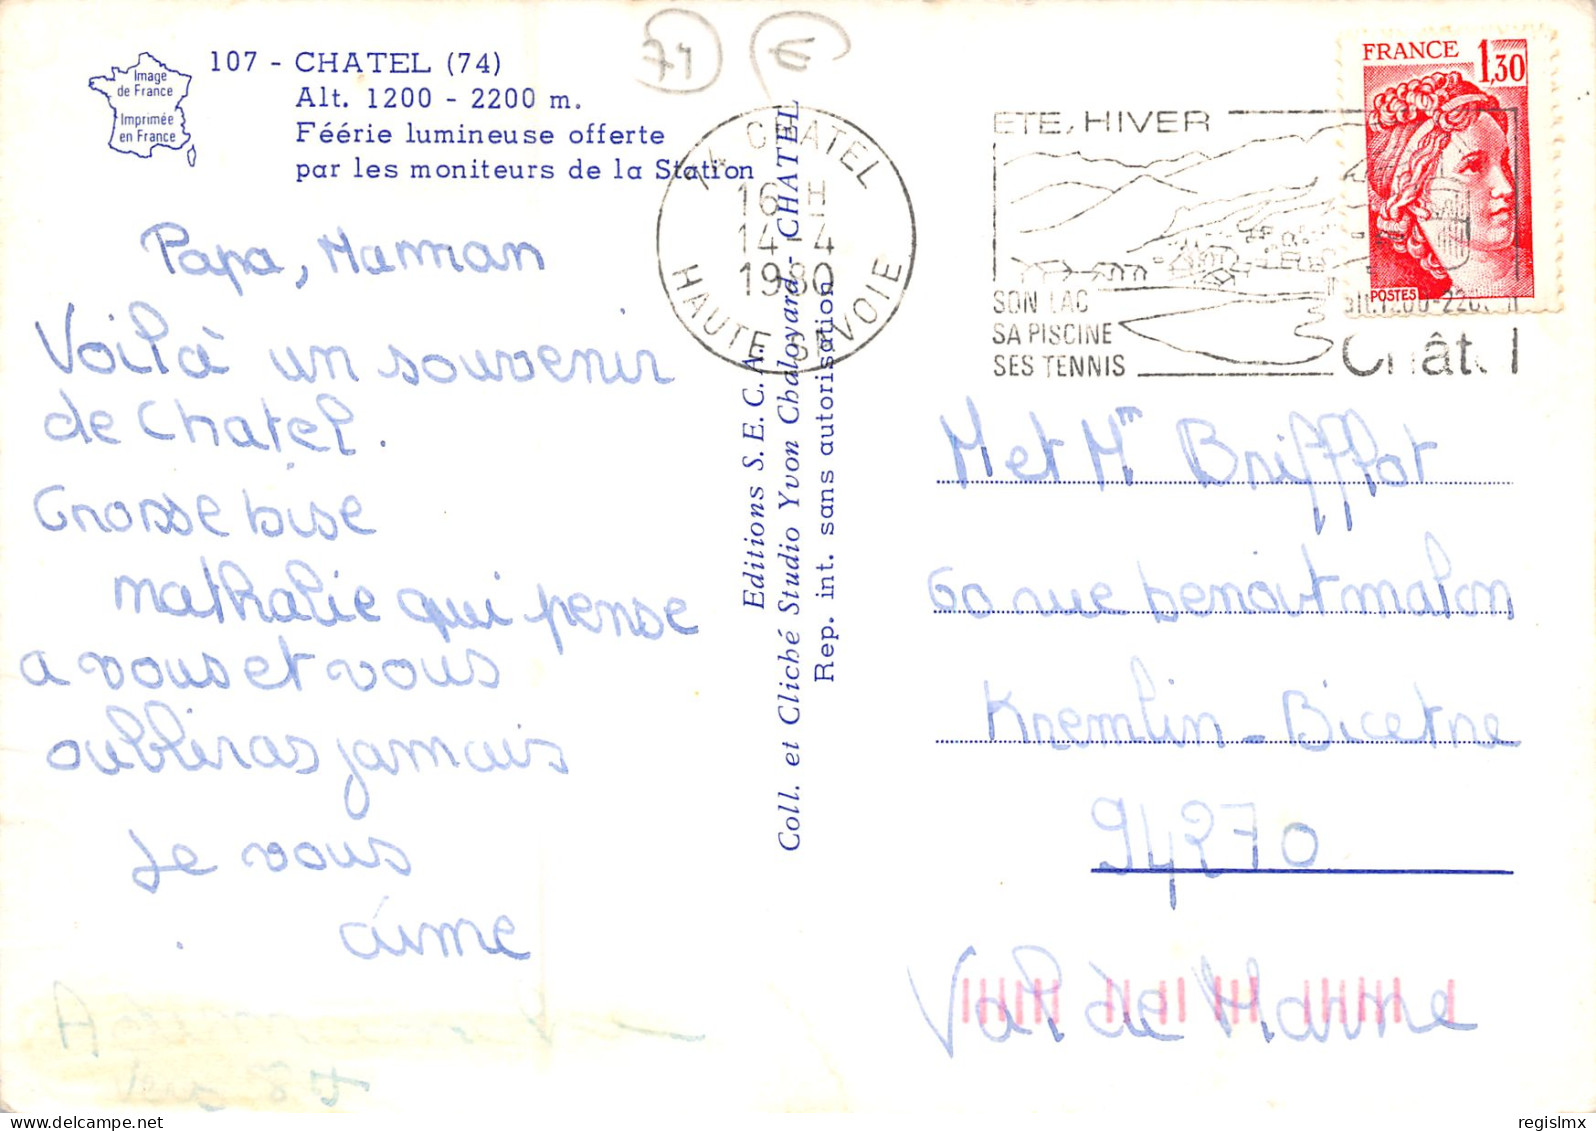 Image
de France
Imprimée
en France
107 - CHATEL (74)
Alt. 1200 - 2200 m.
Féérie lumineuse offerte
par les moniteurs de la Station
74
€
74 CHATEL
16 H
14 - 4
1980
HAUTE SAVOIE
ETE, HIVER
SON LAC
SA PISCINE
SES TENNIS
alt. 1200-2200 m
Châtel
FRANCE
1,30
POSTES
Papa, Maman
Voilà un souvenir
de Chatel.
Grosse bise
Nathalie qui pense
a vous et vous
oublieras jamais
Je vous
aime
Editions S.E.C.A.
Coll. et Cliché Studio Yvon Chaloyard - CHATEL
Rep. int. sans autorisation
M et Mm Briffflot
60 rue benoit malon
Kremlin-Bicetre
94270
Val de Marne
regislmx